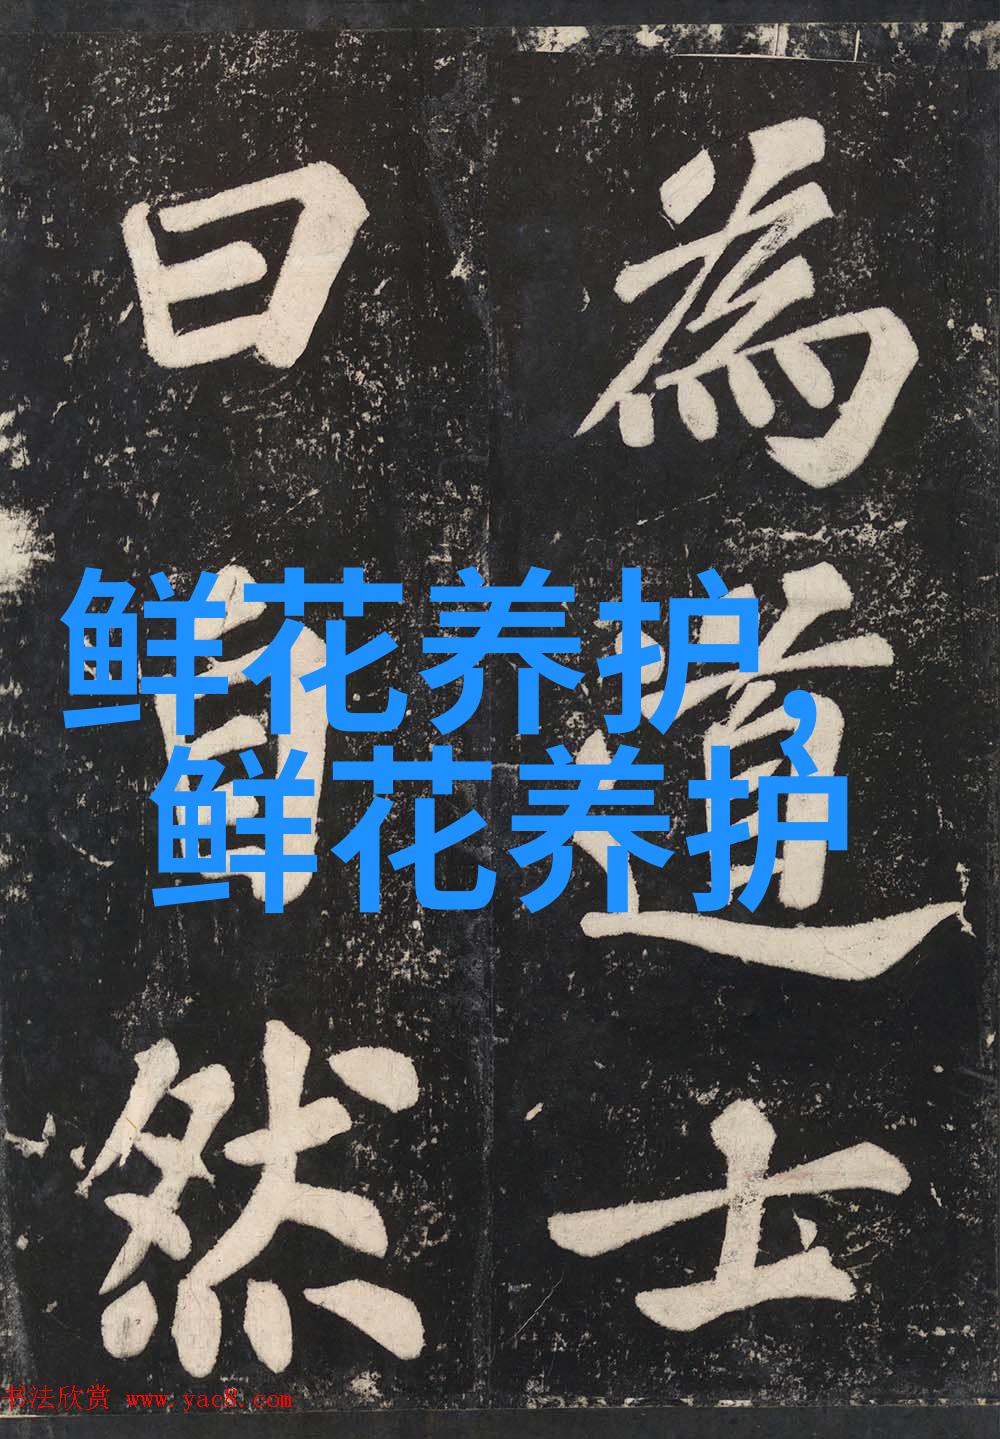 為道士
曰自然
鲜花养护,
鲜花养护
书法欣赏 www.yac8.com